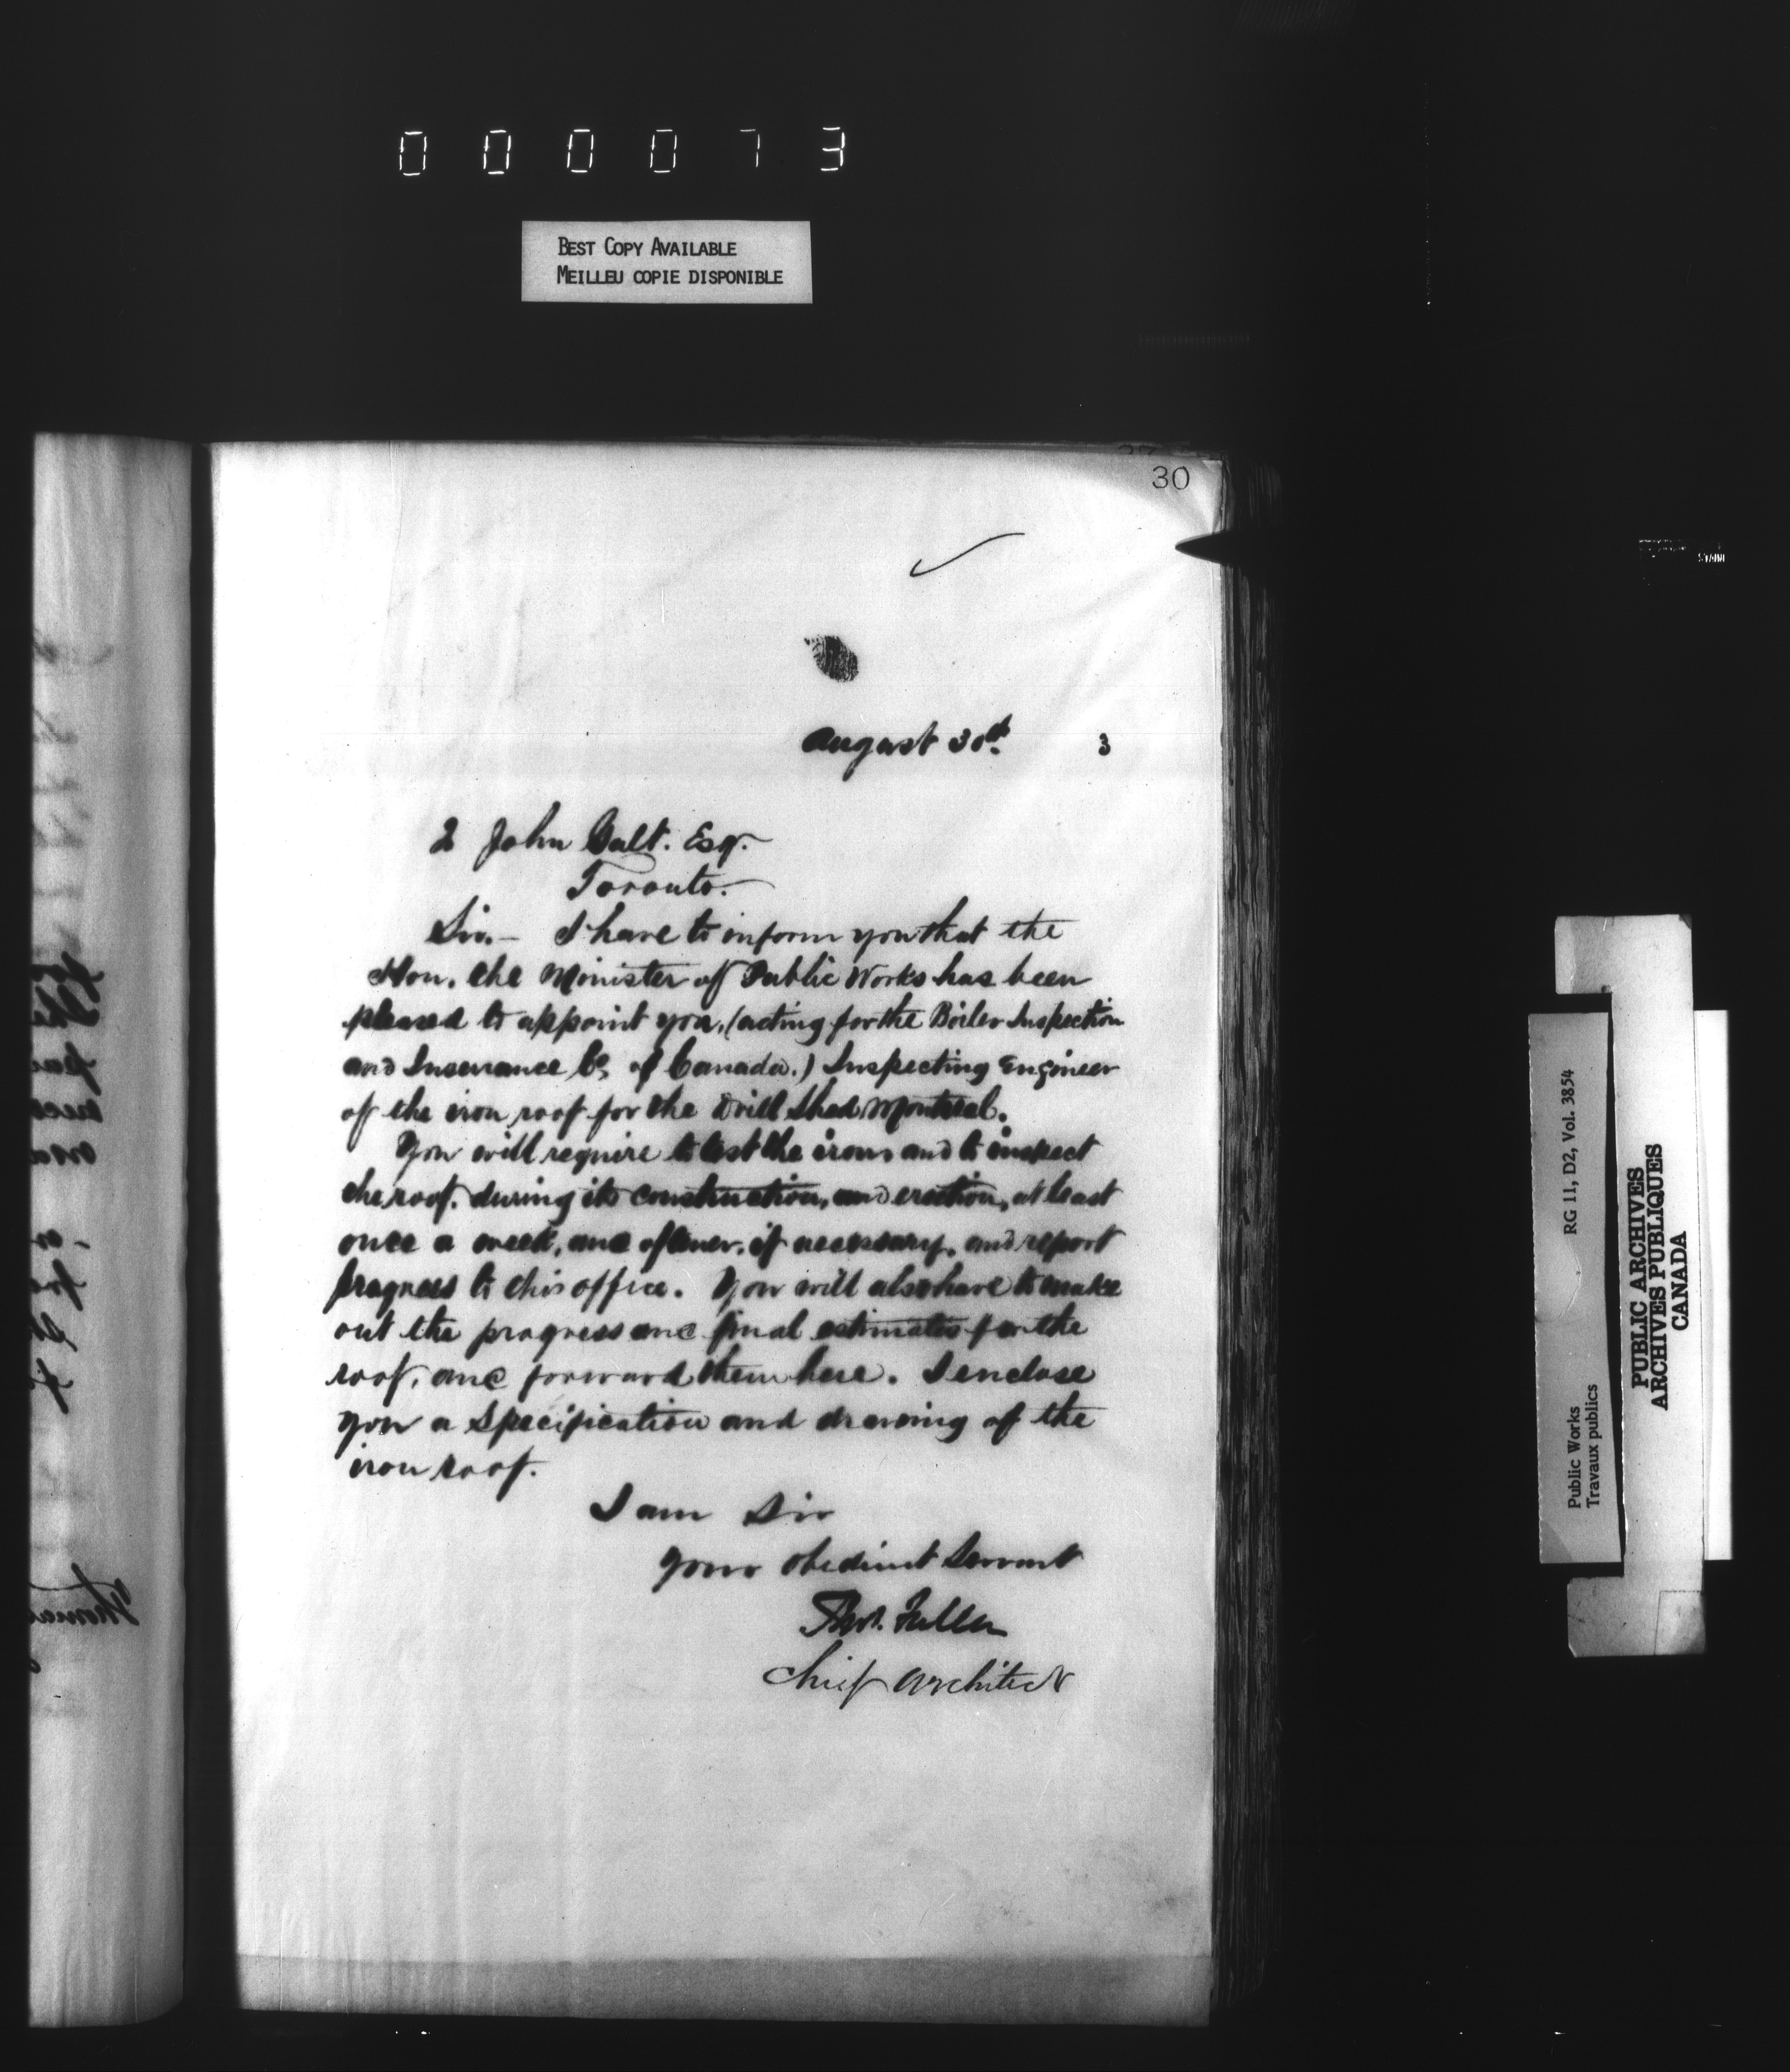 000073
BEST COPY AVAILABLE
MEILLEU COPIE DISPONIBLE
30
August 30th. 3
John Galt. Esqr.
Toronto.
Sir.— I have to inform you that the
Hon. the Minister of Public Works has been
pleased to appoint you, (acting for the Boiler Inspection
and Insurance Co. of Canada.) Inspecting Engineer
of the iron roof for the Drill Shed Montreal.
You will require to test the irons and to inspect
the roof. during its construction, and erection, at least
once a week, and oftener, if necessary, and report
progress to this office. You will also have to make
out the progress and final estimates for the
roof, and forward them here. I enclose
you a Specification and drawing of the
iron roof.
I am Sir
Your obedient Servant
Thos. Fuller
Chief Architect
Public Works
Travaux publics
RG 11, D2, Vol. 3854
PUBLIC ARCHIVES
ARCHIVES PUBLIQUES
CANADA